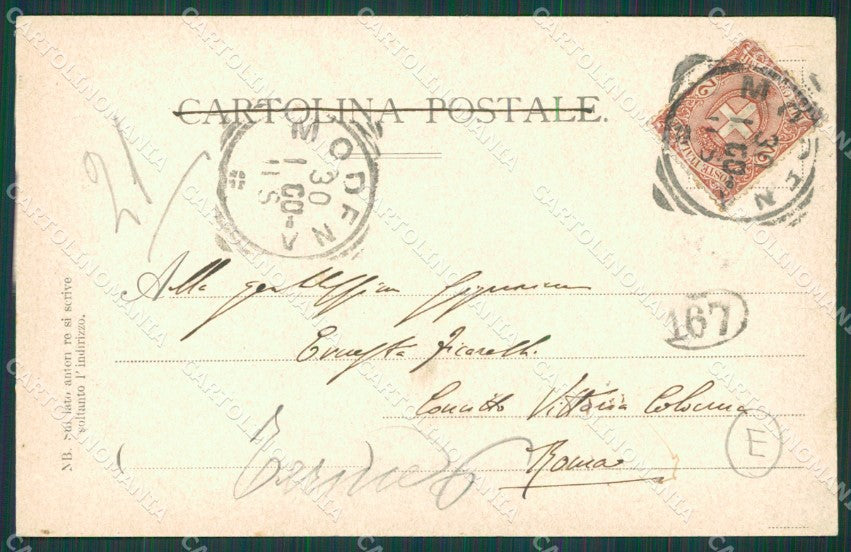 CARTOLINA POSTALE.
MODENA
30
11 S
MODENA
30
21
Alla gentilissima Signorina
Ernesta Ficarelli
Convitto Vittoria Colonna
Roma
167
E
NB. Sul lato anteri re si scrive
soltanto l'indirizzo.
CARTOLINOMANIA